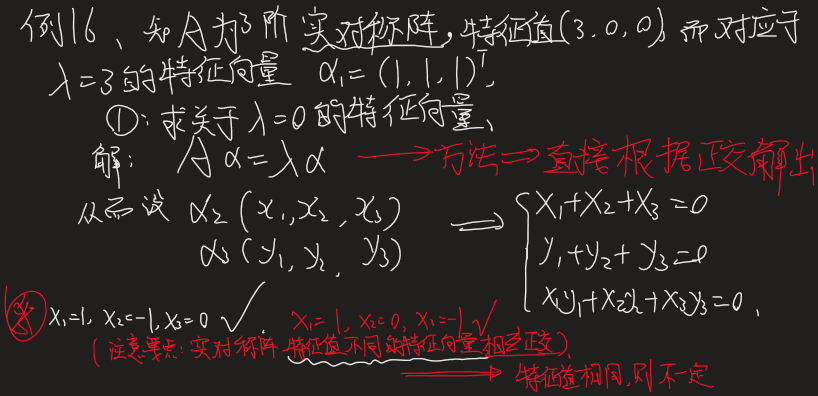 例16、知A为3阶实对称阵,特征值(3,0,0) 而对应于
λ=3的特征向量 α₁=(1,1,1)ᵀ,
①:求关于λ=0的特征向量、
解: Aα=λα ⟶方法⟹直接根据正交解出
从而设 α₂(x₁,x₂,x₃) ⟹ { x₁+x₂+x₃=0
α₃(y₁,y₂,y₃) y₁+y₂+y₃=0
x₁y₁+x₂y₂+x₃y₃=0.
x₁=1, x₂=-1, x₃=0 ✓ x₁=1, x₂=0, x₃=-1 ✓
(注意要点:实对称阵 特征值不同的特征向量相互正交)
⟹ 特征值相同,则不一定